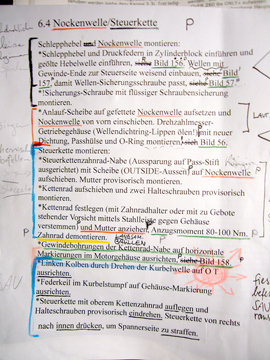 6.4 Nockenwelle/Steuerkette
P
Schlepphebel und Nockenwelle montieren:
*Schlepphebel und Druckfedern in Zylinderblock einführen und
geölte Hebelwelle einführen, siehe Bild 156. Wellen mit
Gewinde-Ende zur Steuerseite weisend einbauen, siehe Bild
157, damit Wellen-Sicherungsschraube passt, siehe Bild 57.
*Sicherungs-Schraube mit flüssiger Schraubensicherung
montieren.
*Anlauf-Scheibe auf gefettete Nockenwelle aufsetzen und
Nockenwelle von vorn einschieben. Drehzahlmesser-
Getriebegehäuse (Wellendichtring-Lippen ölen!) mit neuer
Dichtung, Passhülse und O-Ring montieren, siehe Bild 56.
Steuerkette montieren:
*Steuerkettenzahnrad-Nabe (Aussparung auf Pass-Stift
ausgerichtet) mit Scheibe (OUTSIDE-Aussen) auf Nockenwelle
aufschieben. Mutter provisorisch montieren.
*Kettenrad aufschieben und zwei Halteschrauben provisorisch
montieren.
*Kettenrad festlegen (mit Zahnradhalter oder mit zu Gebote
stehender Vorsicht mittels Stahlwelle gegen Gehäuse
verstemmen) und Mutter anziehen. Anzugsmoment 80-100 Nm.
Zahnrad demontieren.
*Gewindebohrungen der Kettenrad-Nabe auf horizontale
Markierungen im Motorgehäuse ausrichten, siehe Bild 158.
*Linken Kolben durch Drehen der Kurbelwelle auf O T
ausrichten.
*Federkeil im Kurbelstumpf auf Gehäuse-Markierung
ausrichten.
*Steuerkette mit oberem Kettenzahnrad auflegen und
Halteschrauben provisorisch eindrehen. Steuerkette von rechts
nach innen drücken, um Spannerseite zu straffen.
P